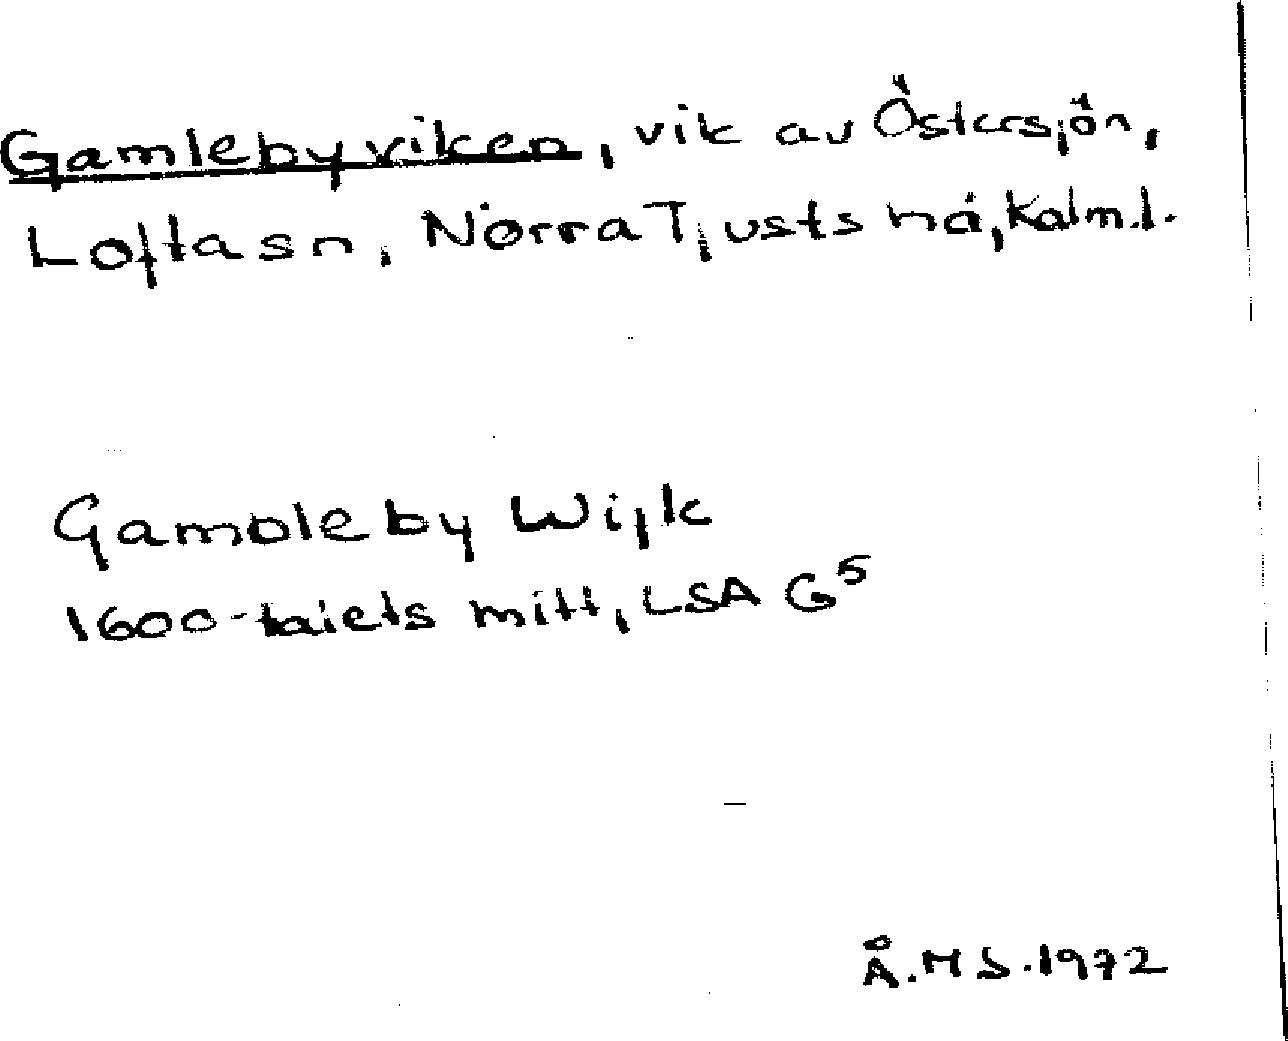 Gamlebyviken, vik av Östersjön,
Loftasn, Norra Tjusts hd, Kalm.l.
Gamole by Wijk
1600-talets mitt, LSA G5
Å.M S.1972